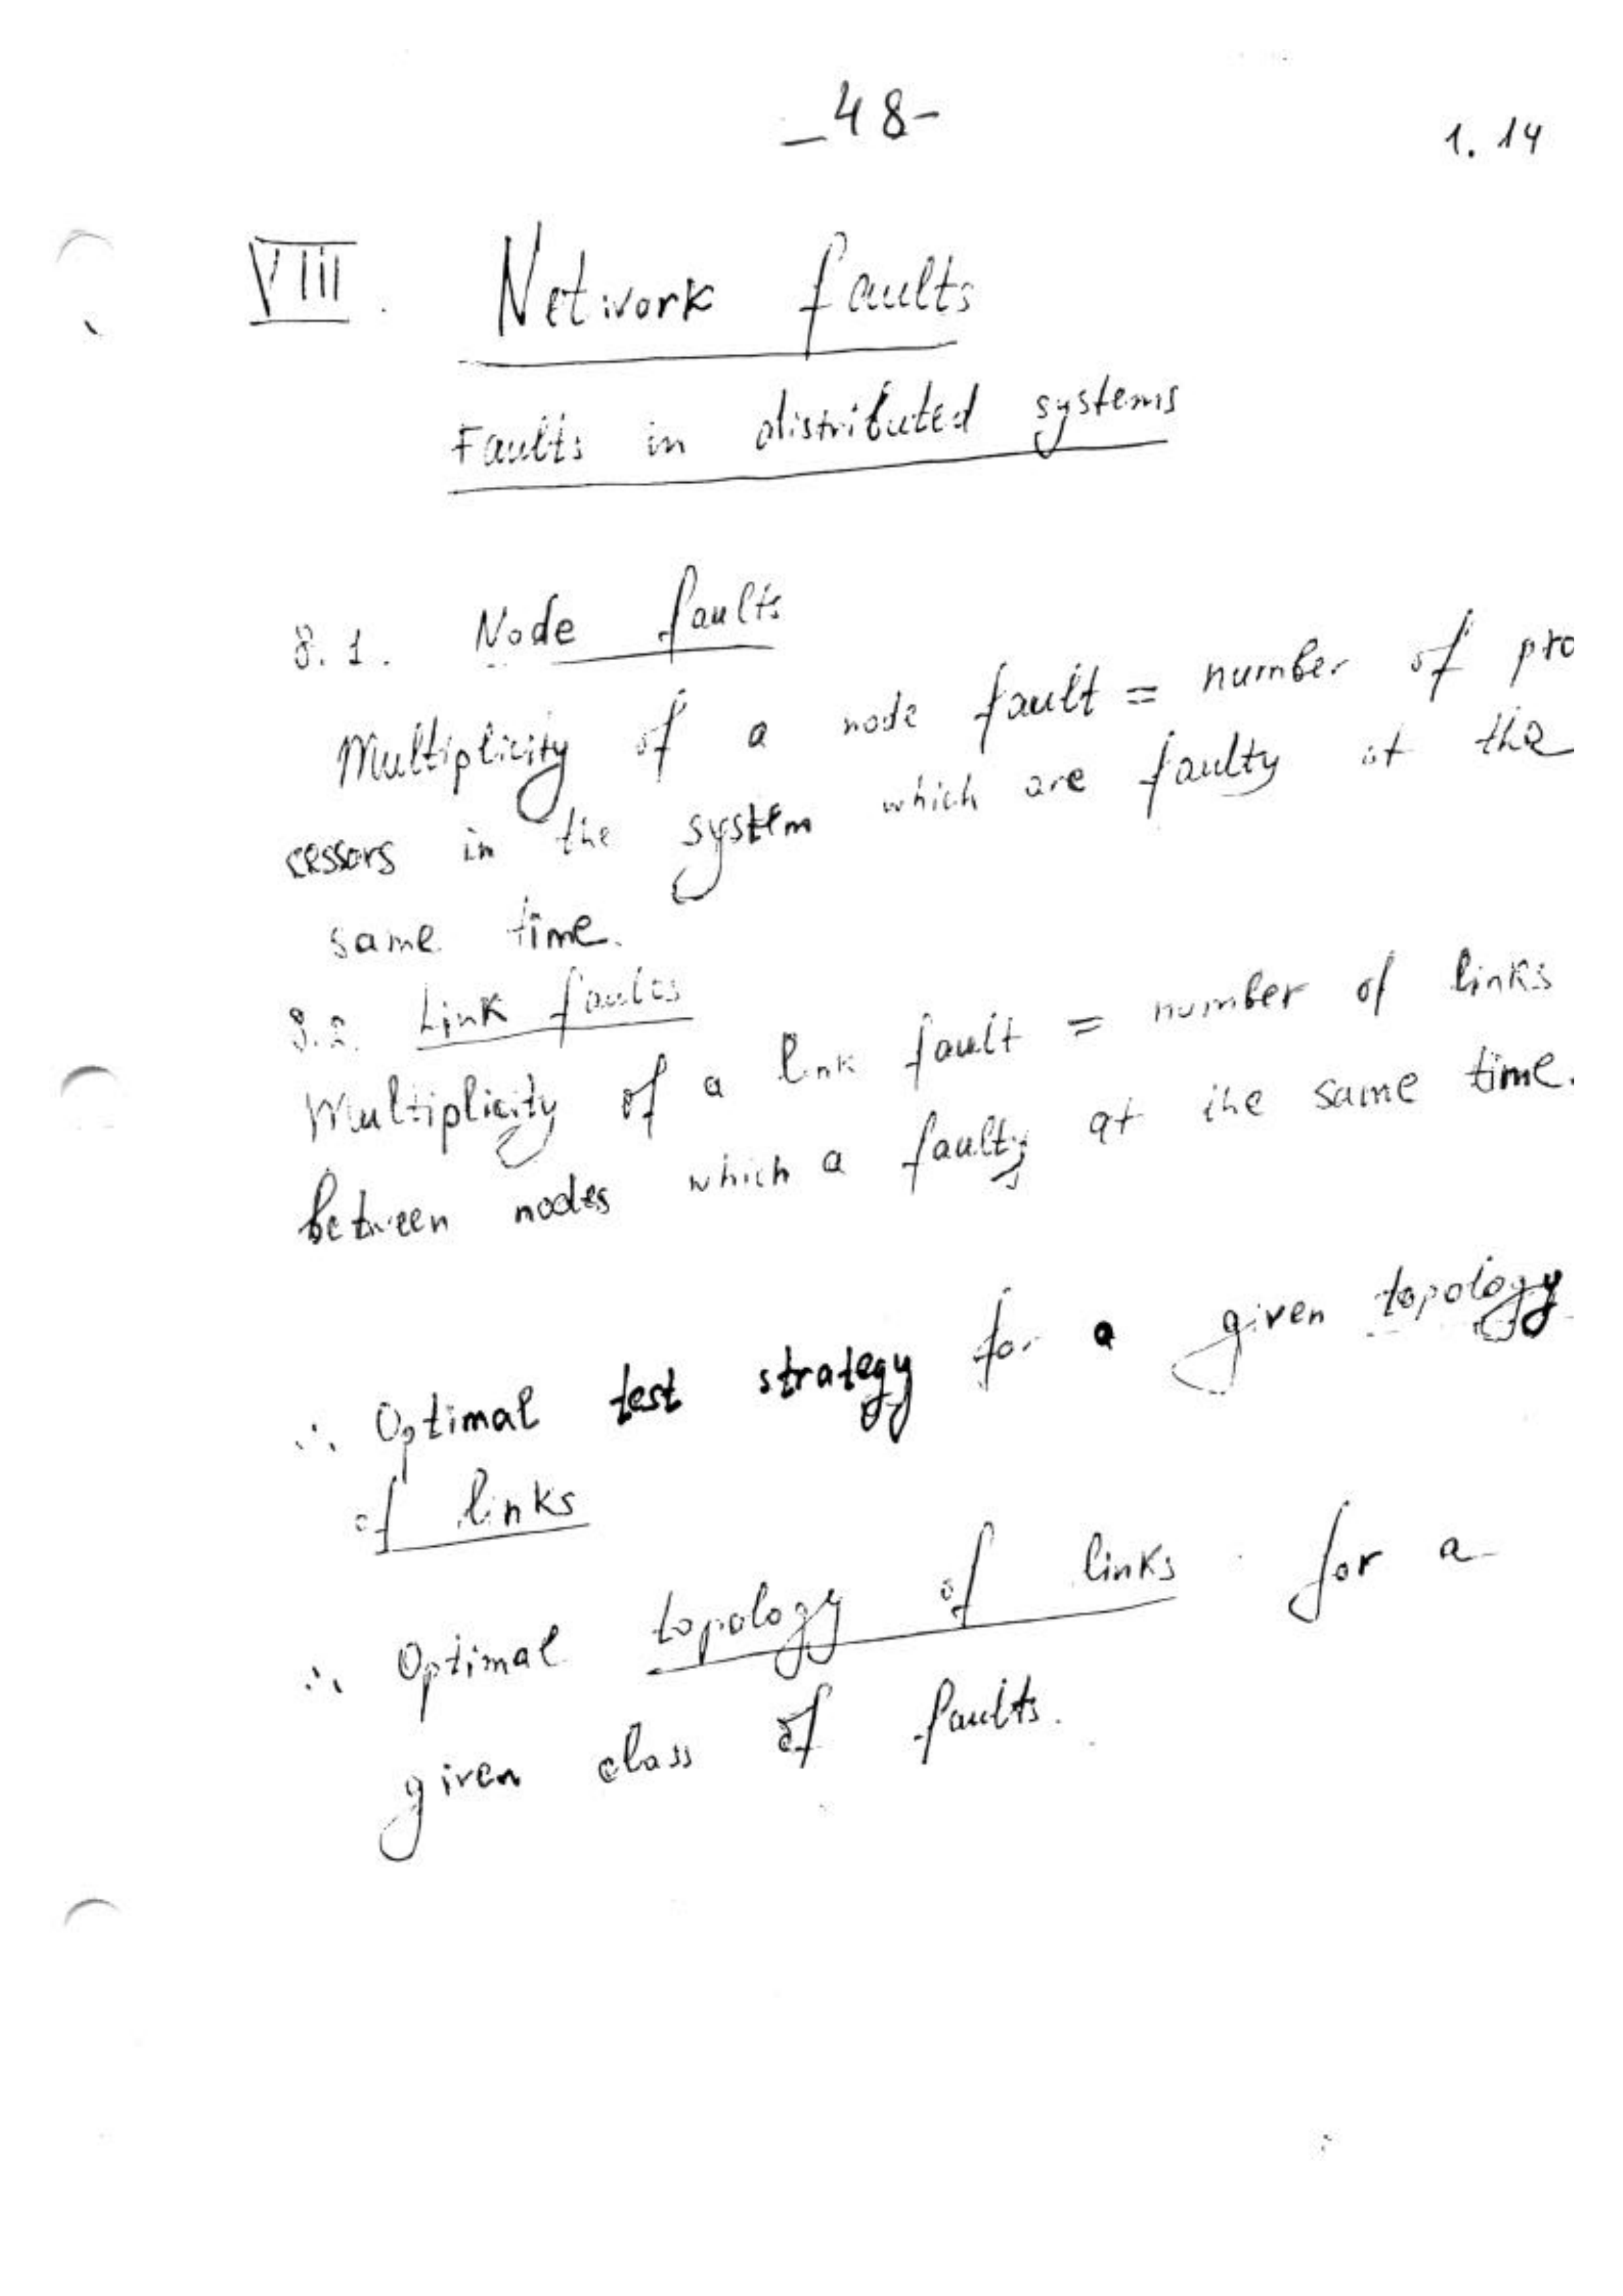 -48-
1.14
VIII. Network faults
Faults in distributed systems
8.1. Node faults
Multiplicity of a node fault = number of pro
cessors in the system which are faulty at the
same time.
8.2. Link faults
Multiplicity of a link fault = number of links
between nodes which a faulty at the same time.
∴ Optimal test strategy for a given topology
of links
∴ Optimal topology of links for a
given class of faults.